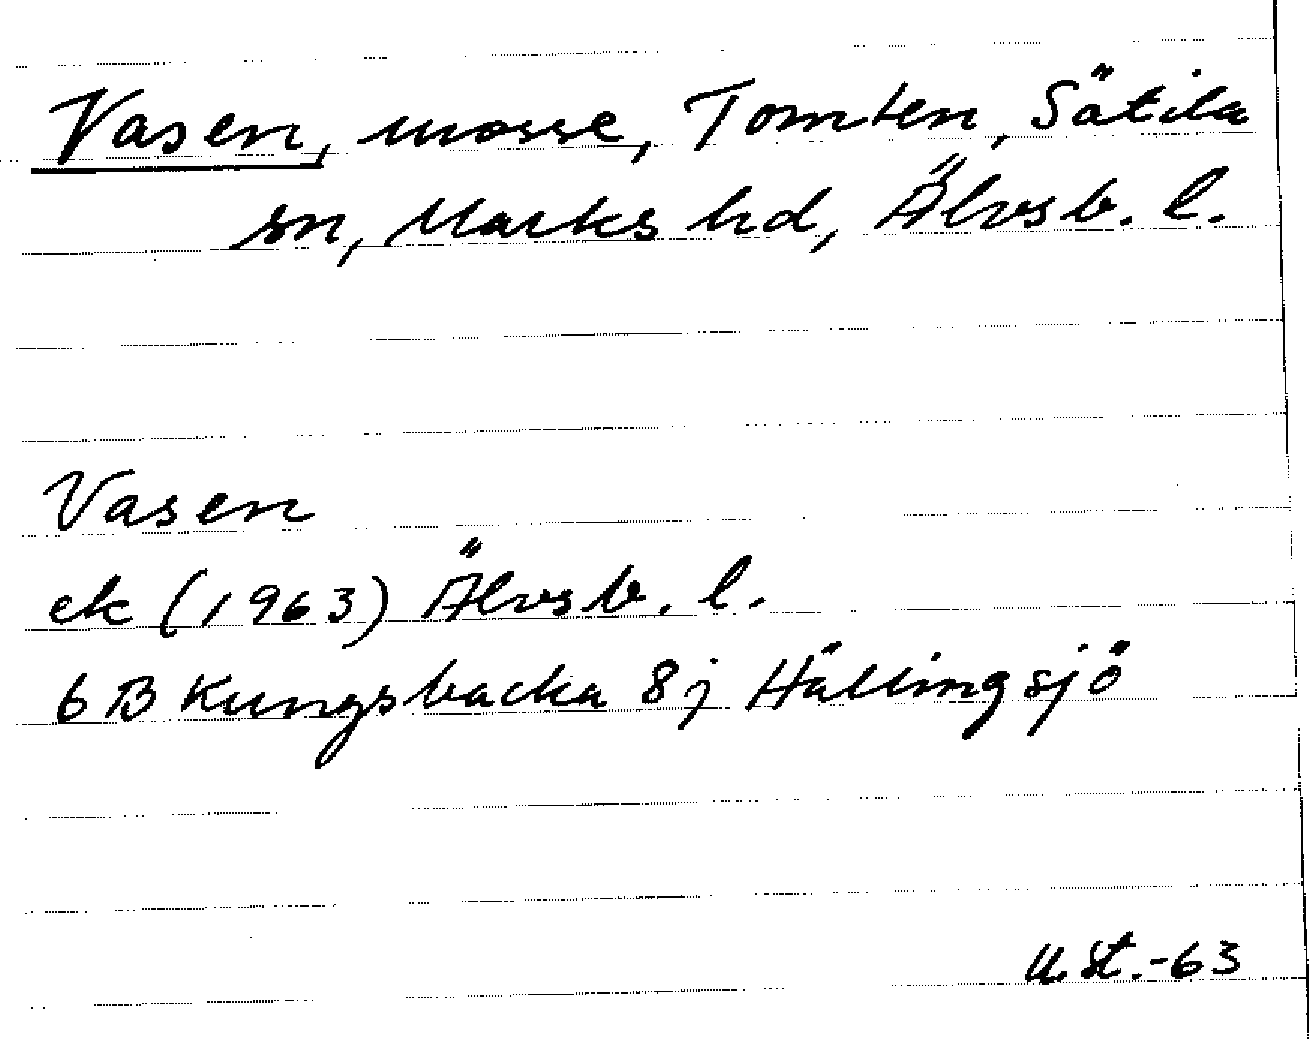 Vasen, mosse, Tomten, Sätila
sn, Marks hd, Älvsb. l.
Vasen
ek (1963) Älvsb. l.
6B Kungsbacka 8j Hällingsjö
U.St.-63